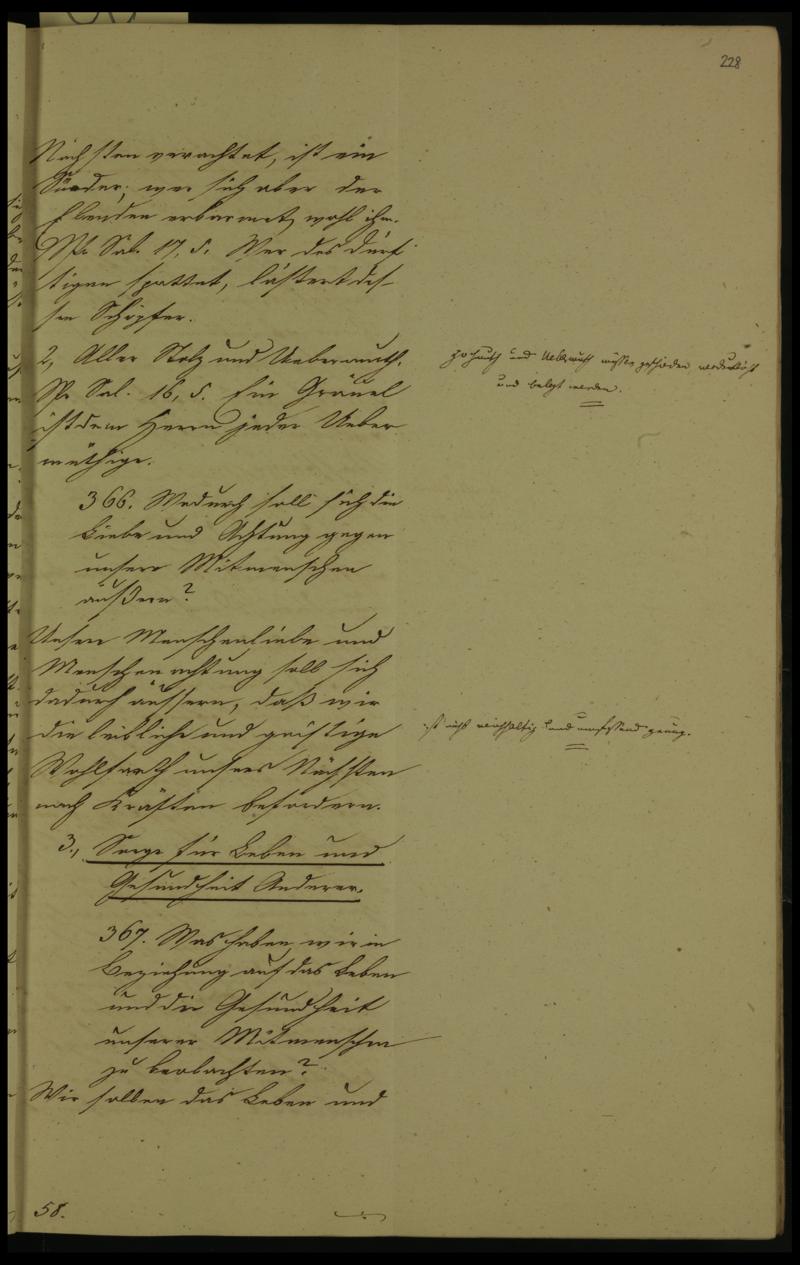 228
Nächsten verachtet, ist ein
Sünder; wer sich aber der
Elenden erbarmet, wohl ihm.
Spr. Sal. 17, 5. Wer des Dürf
tigen spottet, lästert des-
sen Schöpfer.
2, Aller Stolz und Uebermuth.
Spr. Sal. 16, 5. Ein Gräuel
ist dem Herrn jeder Ueber
müthige.
und Uebermuth müssen geschieden
und belegt werden.
366. Wodurch soll sich die
Liebe und Achtung gegen
unsere Mitmenschen
äußern?
Unsere Menschenliebe und
Menschenachtung soll sich
dadurch äussern, daß wir
die leibliche und geistige
Wohlfarth unsers Nächsten
nach Kräften befördern.
ist nicht reichhaltig und umfassend genug.
3., Sorge für Leben und
Gesundheit Anderer.
367. Was haben wir in
Beziehung auf das Leben
und die Gesundheit
unserer Mitmenschen
zu beobachten?
Wir sollen das Leben und
58.